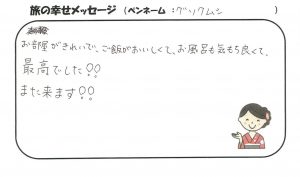 旅の幸せメッセージ (ペンネーム:グソクムシ )
お部屋がきれいで、ご飯がおいしくて、お風呂も気もち良くて、
最高でした!!
また来ます!!